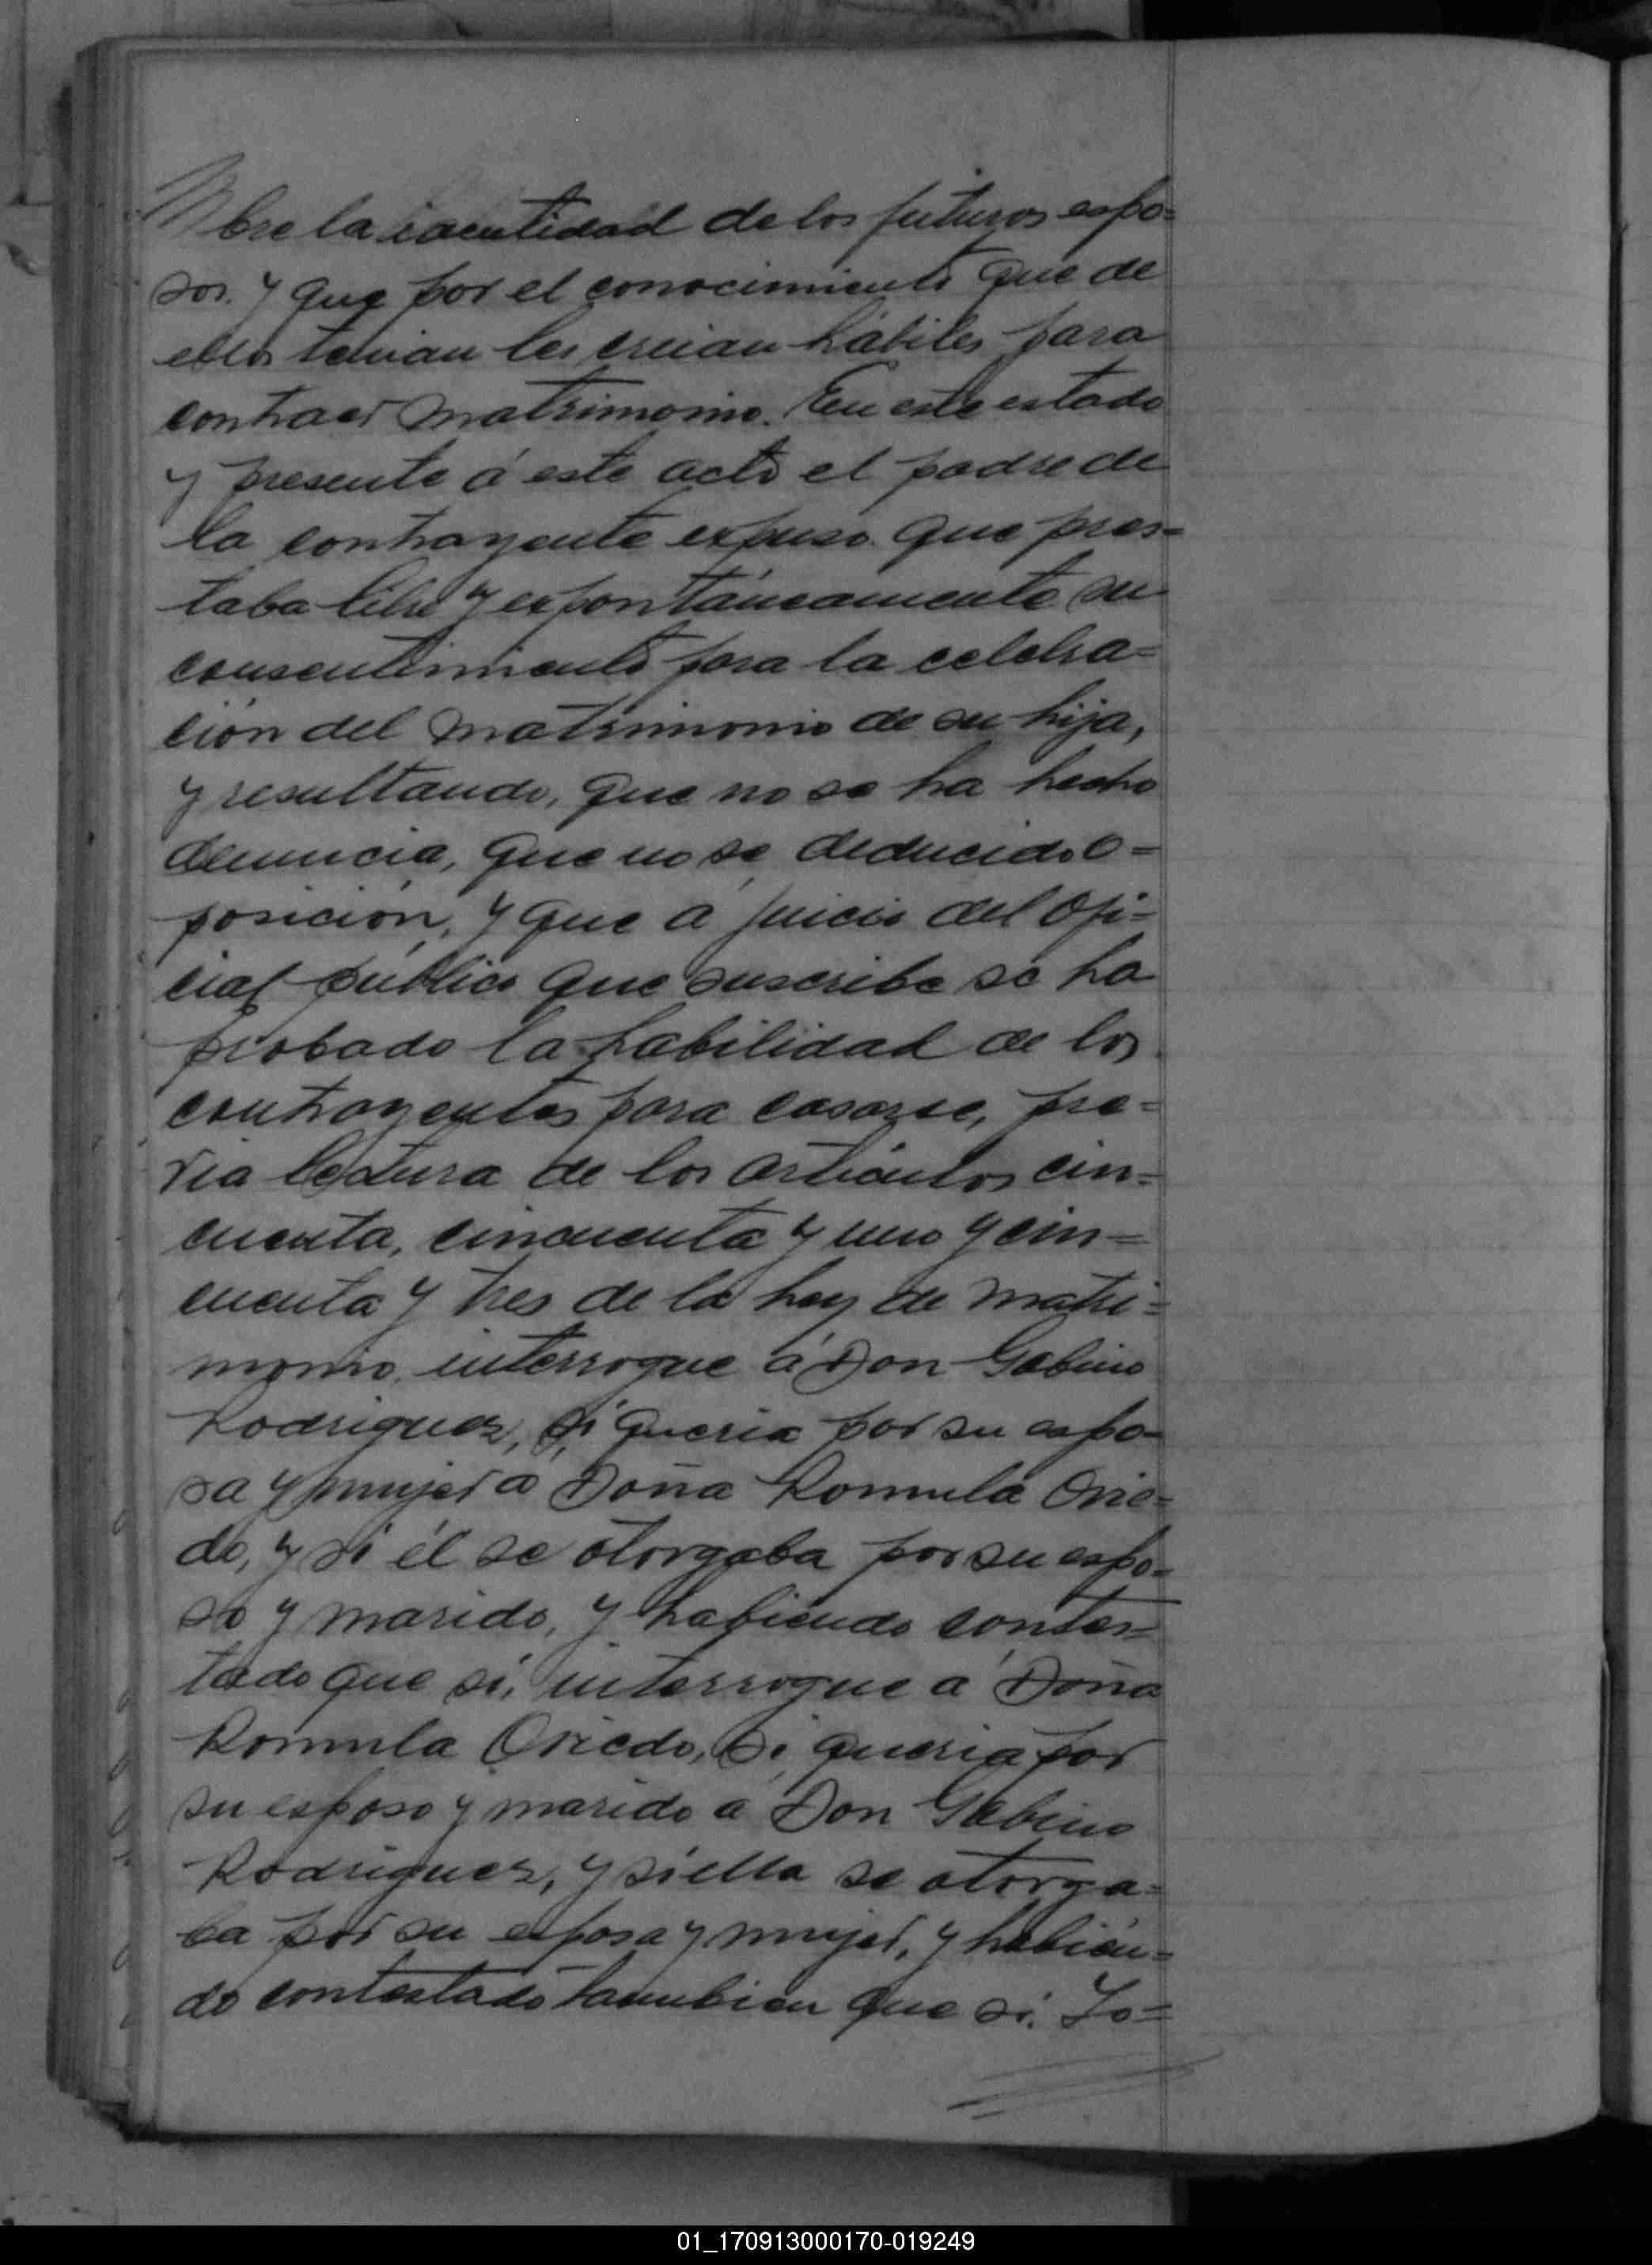 bre la identidad de los futuros espo=
sos. y que por el conocimiento que de
ellos tenian les creian hábiles para
contraer matrimonio. En este estado
y presente á este acto el padre de
la contrayente expuso que pres=
taba libre y espontáneamente su
consentimiento para la celebra=
ción del matrimonio de su hija,
y resultando, que no se ha hecho
denuncia, que no se deducido o=
posición, y que á juicio del ofi=
cial público que suscribe se ha
probado la habilidad de los
contrayentes para casarse, pre=
via lectura de los artículos cin=
cuenta, cincuenta y uno y cin=
cuenta y tres de la ley de matri=
monio, interrogue á Don Gabino
Rodriguez, si queria por su espo=
sa y mujer a Doña Romula Ovie=
do, y si él se otorgaba por su espo=
so y marido, y habiendo contes=
tado que si, interrogue á Doña
Romula Oviedo, si queria por
su esposo y marido a Don Gabino
Rodriguez, y si ella se otorga=
ba por su esposa y mujer, y habien=
do contestado tambien que si. Yo=
01_170913000170-019249